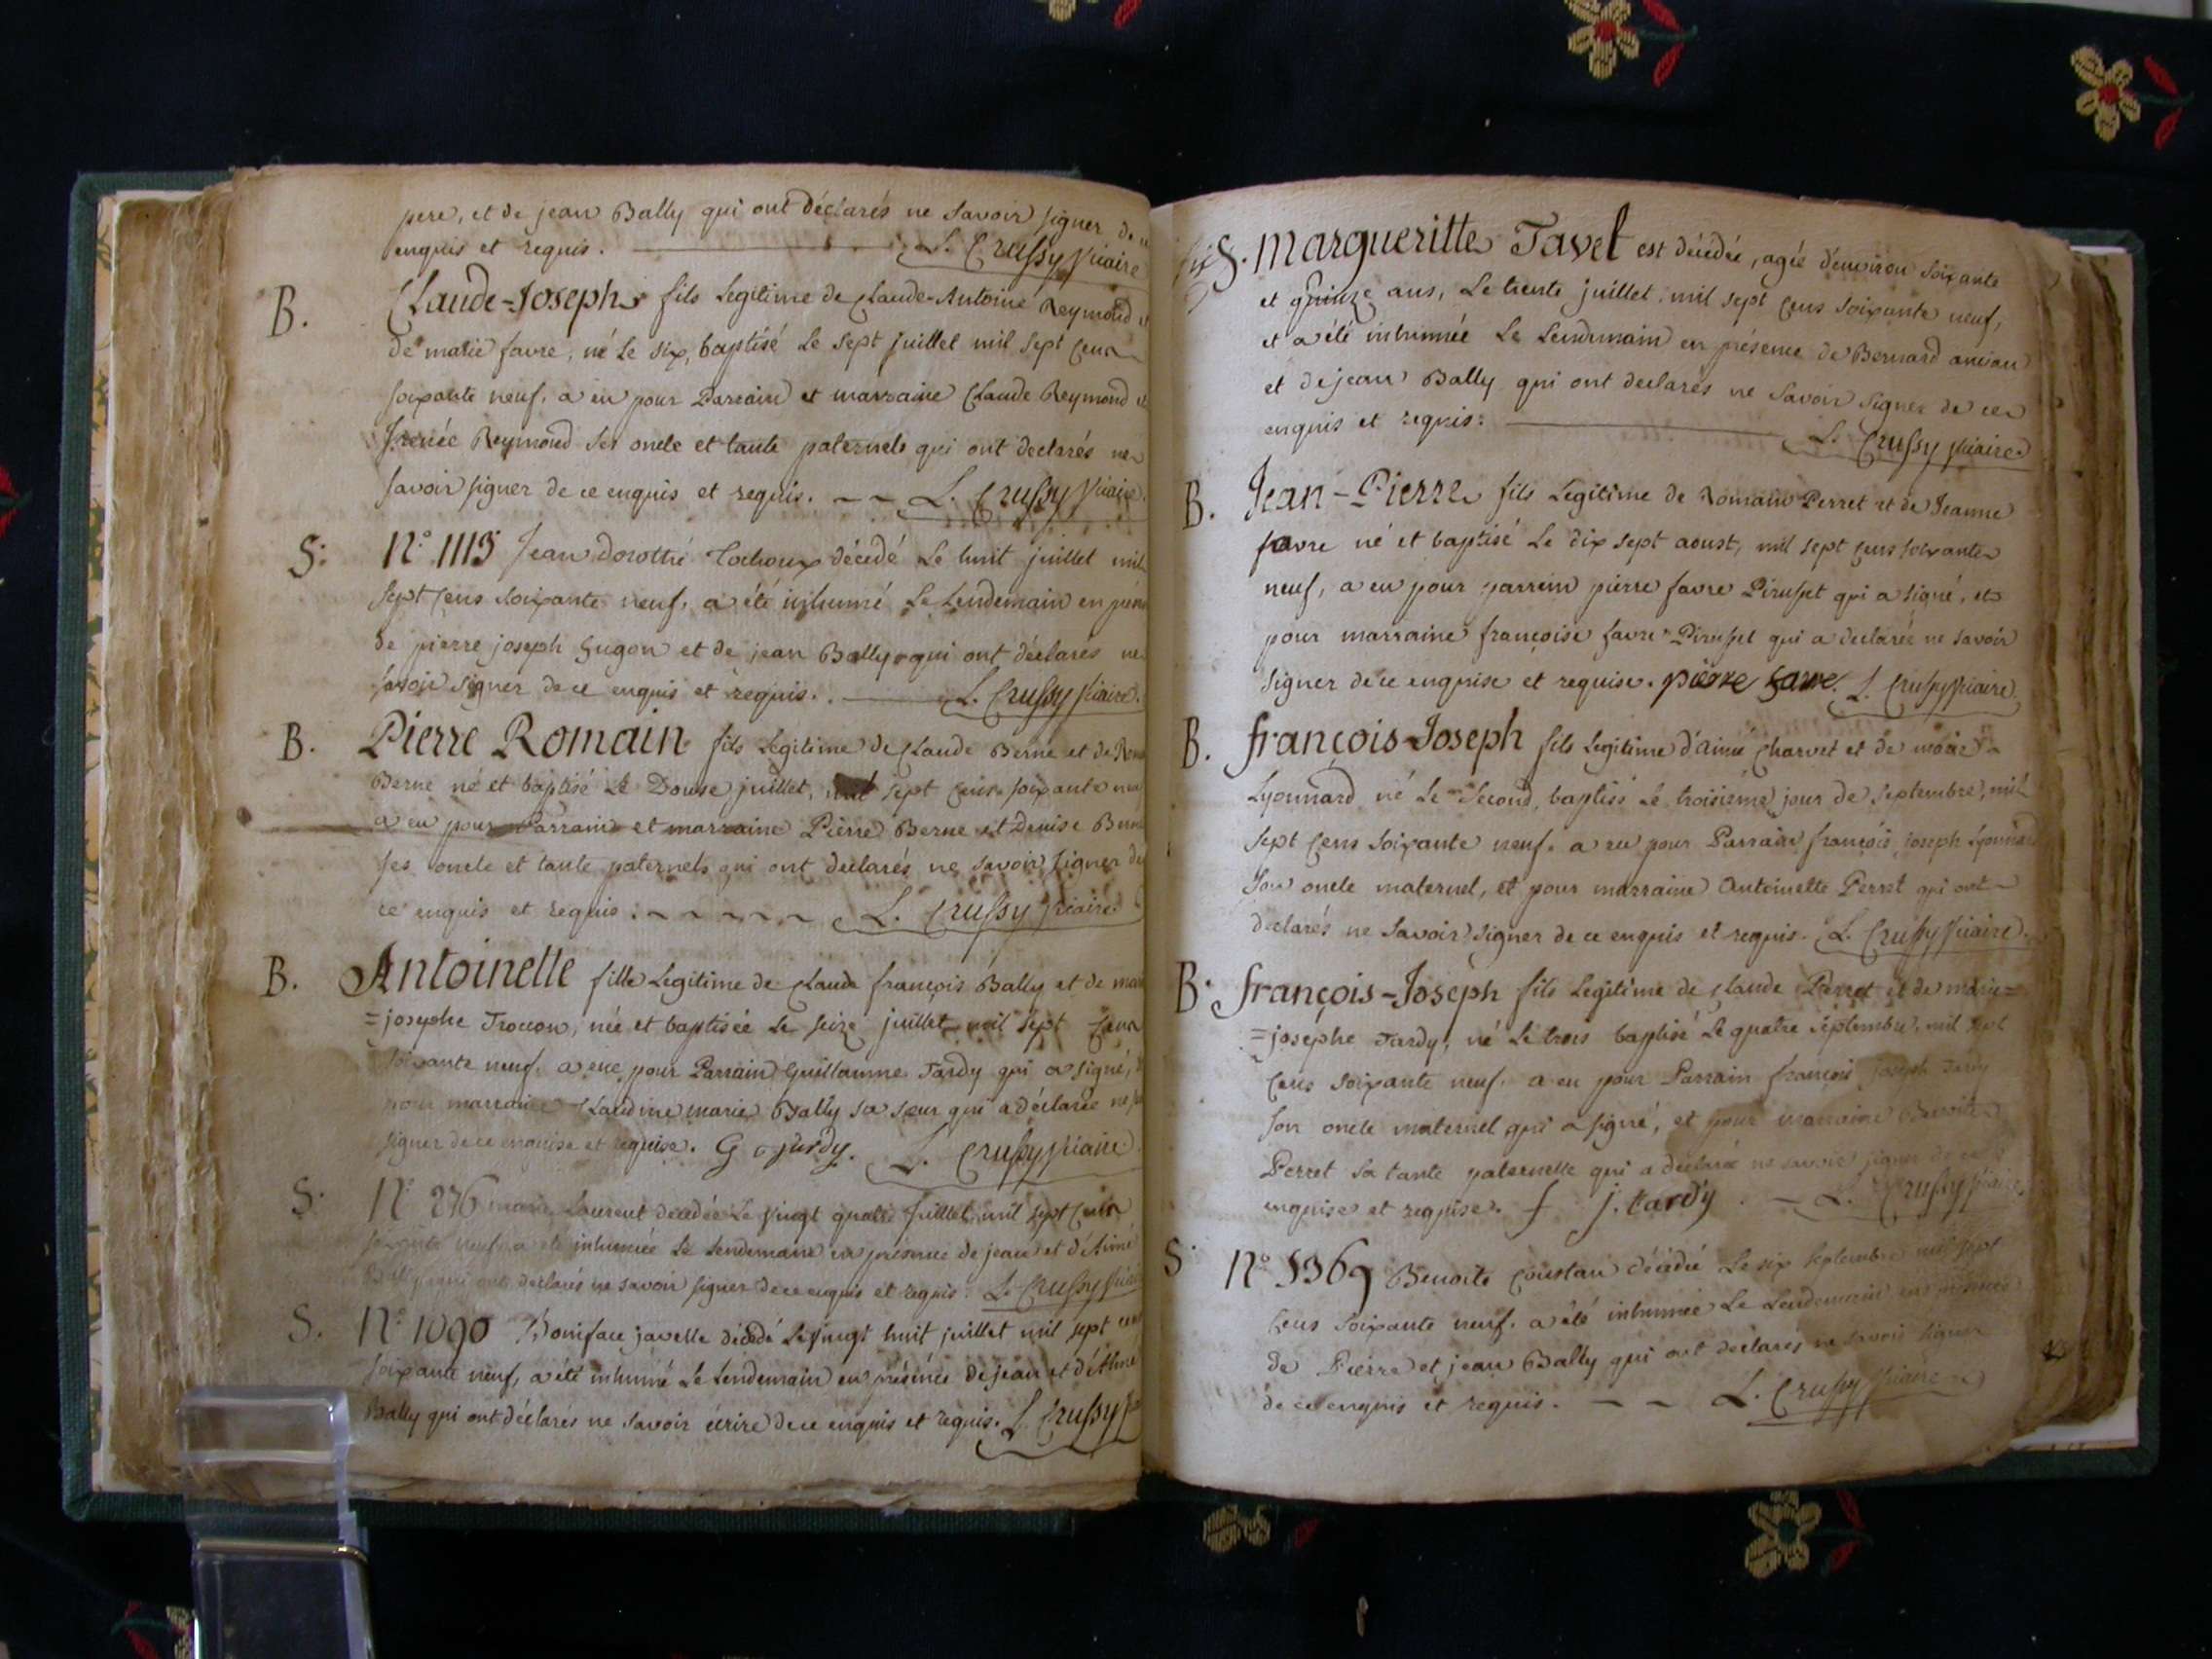 pere, et de jean Bally qui ont déclarés ne savoir signer de
enquis et requis. L. Crussy Vicaire
B. Claude-Joseph fils Legitime de Claude-Antoine Reymond et
de marie favre, né le six, baptisé le sept juillet mil sept cens
soixante neuf. a eu pour Parrain et marraine Claude Reymond et
Reymond ses oncle et tante paternels qui ont declarés ne
savoir signer de ce enquis et requis. L. Crussy Vicaire.
S: N° 1113 Jean dorothé décédé Le huit juillet mil
sept cens soixante neuf, a été inhumé Le Lendemain en
de pierre joseph gugon et de jean Bally qui ont déclarés ne
savoir signer de ce enquis et requis. L. Crussy Vicaire.
B. Pierre Romain fils Legitime de Claude Berne et de
Berne né et baptisé Le Douse juillet, mil sept cens soixante
a eu pour Parrain et marraine Pierre Berne et Denise Berne
ses oncle et tante paternels qui ont declarés ne savoir signer de
ce enquis et requis. L. Crussy Vicaire
B. Antoinette fille Legitime de Claude françois Bally et de
=josephe Trocon, née et baptisée Le seize juillet mil sept cens
soixante neuf. a eue pour Parrain Guillaume Tardy qui a signé,
pour marraine Claudine marie Bally sa sœur qui a déclarée ne
signer de ce enquise et requise. G tardy. L. Crussy Vicaire
S. N° 276 marie Laurent décédée Le vingt quatre juillet mil sept cens
soixante neuf a été inhumée Le Lendemain en présence de jean et d'Aimé
Bally qui ont declarés ne savoir signer de ce enquis et requis. L. Crussy
S. N° 1090 Boniface javelle décédé Le vingt huit juillet mil sept cens
soixante neuf, a été inhumé Le Lendemain en présence de jean et d'Aimé
Bally qui ont déclarés ne savoir écrire de ce enquis et requis. L. Crussy
S. Margueritte Tavel est décédée, agée d'environ soixante
et quinze ans, Le trente juillet, mil sept cens soixante neuf,
et a été inhumée Le Lendemain en présence de Bernard
et de jean Bally qui ont declarés ne savoir signer de ce
enquis et requis. L. Crussy Vicaire
B. Jean-Pierre fils Legitime de Romain Perret et de Jeanne
favre né et baptisé Le dix sept aoust, mil sept cens soixante
neuf, a eu pour parrein pierre favre Pirusset qui a signé, et
pour marraine françoise favre Pirusset qui a declarée ne savoir
signer de ce enquise et requise. pierre favre. L. Crussy Vicaire
B. françois-Joseph fils Legitime d'aimé Charvet et de marie
Lyonnard né Le second, baptisé Le troisième jour de septembre, mil
sept cens soixante neuf. a eu pour Parrain françois joseph Lyonnard
son oncle maternel, et pour marraine Antoinette Perret qui ont
declarés ne savoir signer de ce enquis et requis. L. Crussy Vicaire.
B. françois-Joseph fils Legitime de Claude Perret et de marie=
=josephe Tardy, né Le trois baptisé Le quatre septembre, mil sept
cens soixante neuf. a eu pour Parrain françois joseph Tardy
son oncle maternel qui a signé, et pour marraine Benoite
Perret sa tante paternelle qui a déclarée ne savoir signer de ce
enquise et requise. f j. tardy. L. Crussy Vicaire.
S. N° 5369 Benoite Coustan décédée Le six septembre mil sept
cens soixante neuf. a été inhumée Le Lendemain en présence
de Pierre et jean Bally qui ont declarés ne savoir signer
de ce enquis et requis. L. Crussy Vicaire